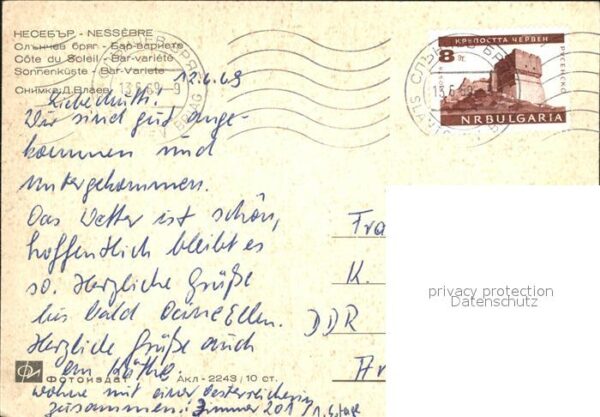 НЕСЕБЪР - NESSÈBRE
Слънчев бряг - Бар-вариете
Côte du Soleil - Bar-variété
Sonnenküste - Bar-Variete
Снимка: Д. Влаев
КРЕПОСТТА ЧЕРВЕН
8
РУСЕНСКО
NR BULGARIA
13.6.69.-9
12.6.69
Liebe
Wir sind gut ange-
kommen und
untergekommen.
Das Wetter ist schön,
hoffentlich bleibt es
so. Herzliche Grüße
bis bald Deine Ellen.
Herzliche Grüße auch
an Käthe.
wohne mit einer Oesterreicherin
zusammen: Zimmer 201 / 1. Etage
Fra
K.
DDR
privacy protection
Datenschutz
Фотоиздат Акл - 2243 / 10 ст.